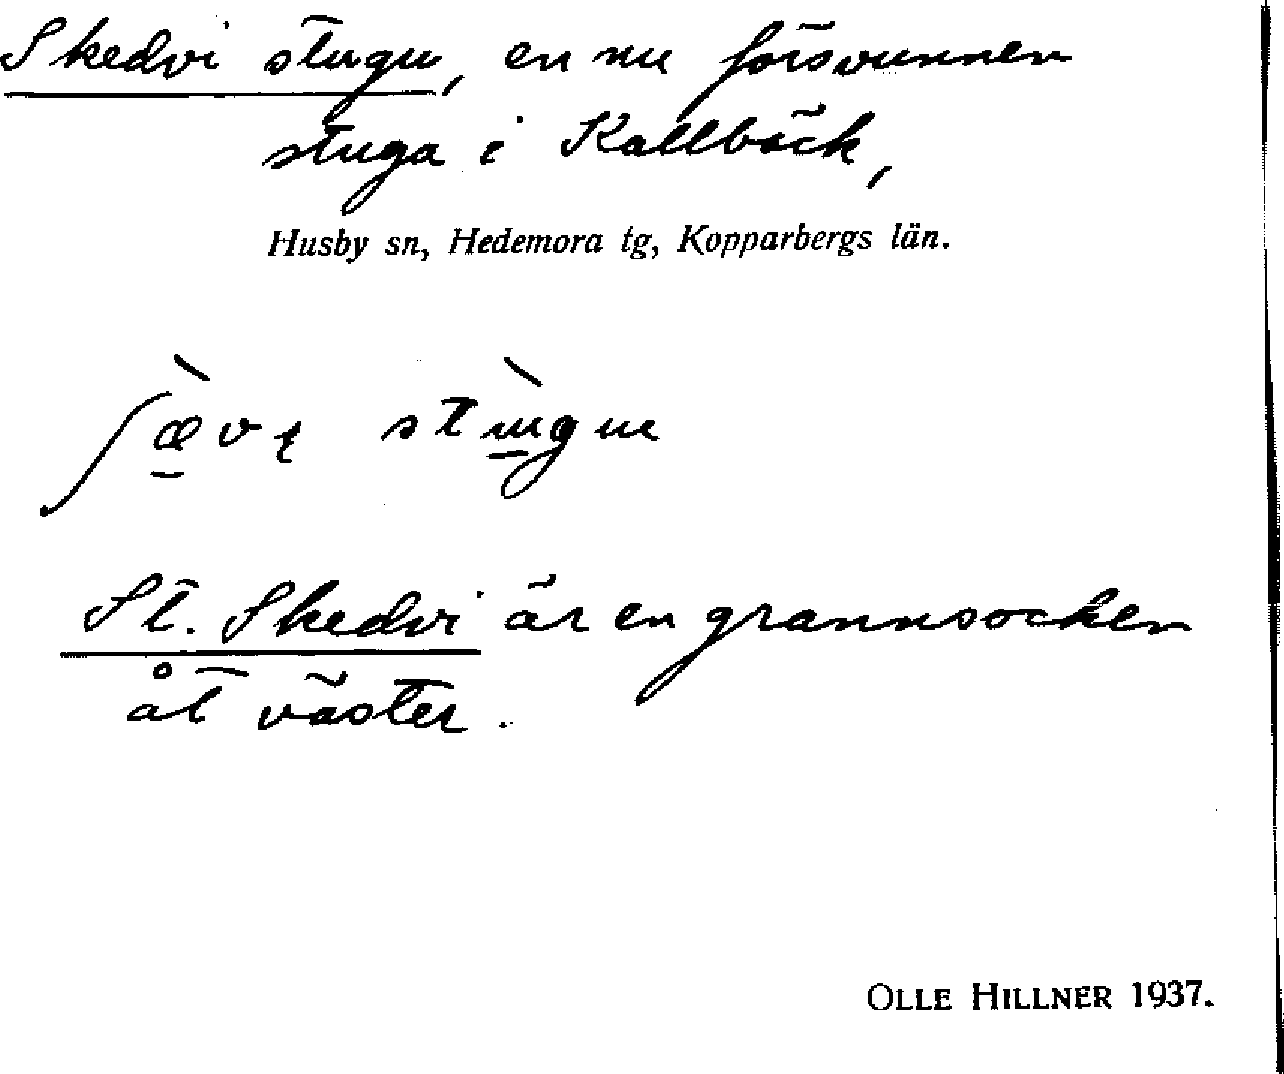 Skedvi stugu, en nu försvunnen
stuga i Kallbäck,
Husby sn, Hedemora tg, Kopparbergs län.
St. Skedvi är en grannsocken
åt väster.
OLLE HILLNER 1937.